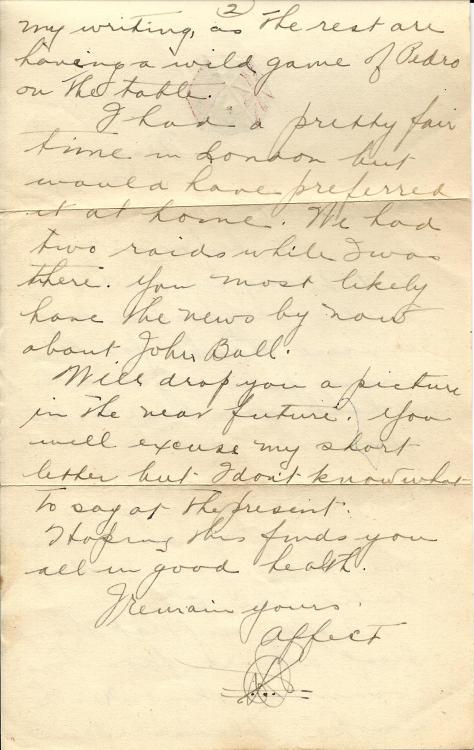 2
my writing, as the rest are
having a wild game of Pedro
on the table.
I had a pretty fair
time in London but
would have preferred
it at home. We had
two raids while I was
there. You most likely
have the news by now
about John Ball.
Will drop you a picture
in the near future. You
will excuse my short
letter but I don't know what
to say at the present.
Hoping this finds you
all in good health.
I remain yours
Affect